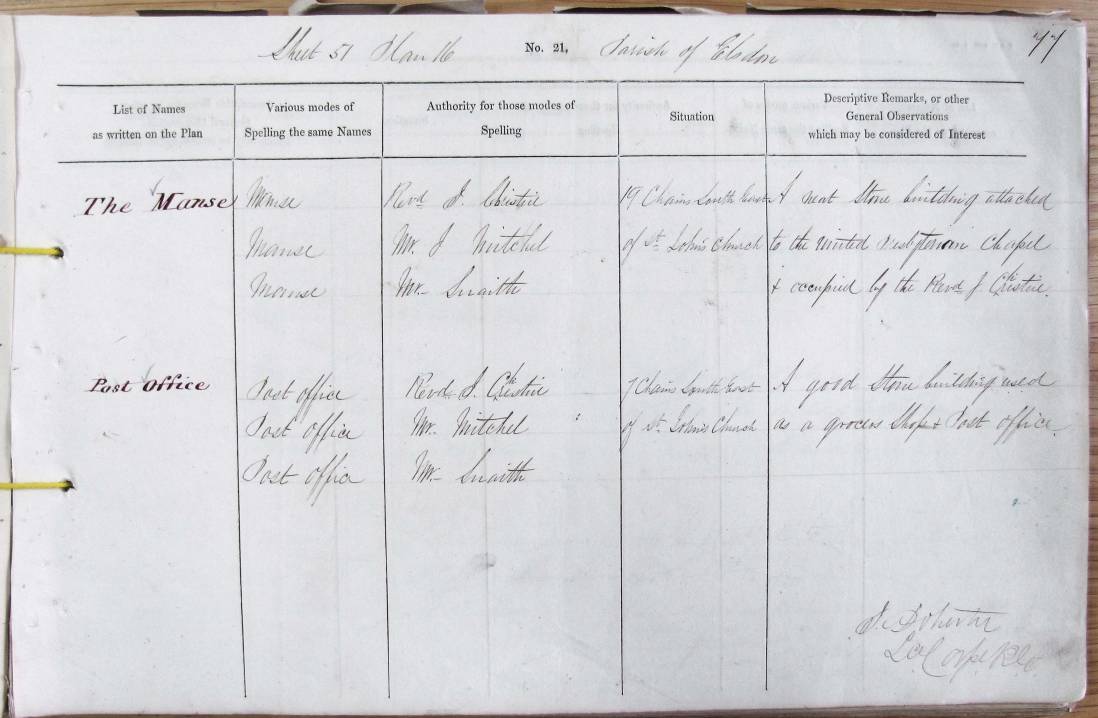 Sheet 51 Plan 16 No. 21, Parish of Elsdon 77
List of Names
as written on the Plan
Various modes of
Spelling the same Names
Authority for those modes of
Spelling
Situation
Descriptive Remarks, or other
General Observations
which may be considered of Interest
The Manse Manse Revd J. Christie 19 Chains South East A neat Stone building attached
Manse Mr. J Mitchel of St. John's Church to the United Presbyterian Chapel
Manse Mr. Snaith & occupied by the Revd J. Christie.
Post Office Post office Revd J. Christie 7 Chains South East A good Stone building used
Post office Mr. Mitchel of St. John's Church as a grocers Shop & Post office.
Post office Mr. Snaith